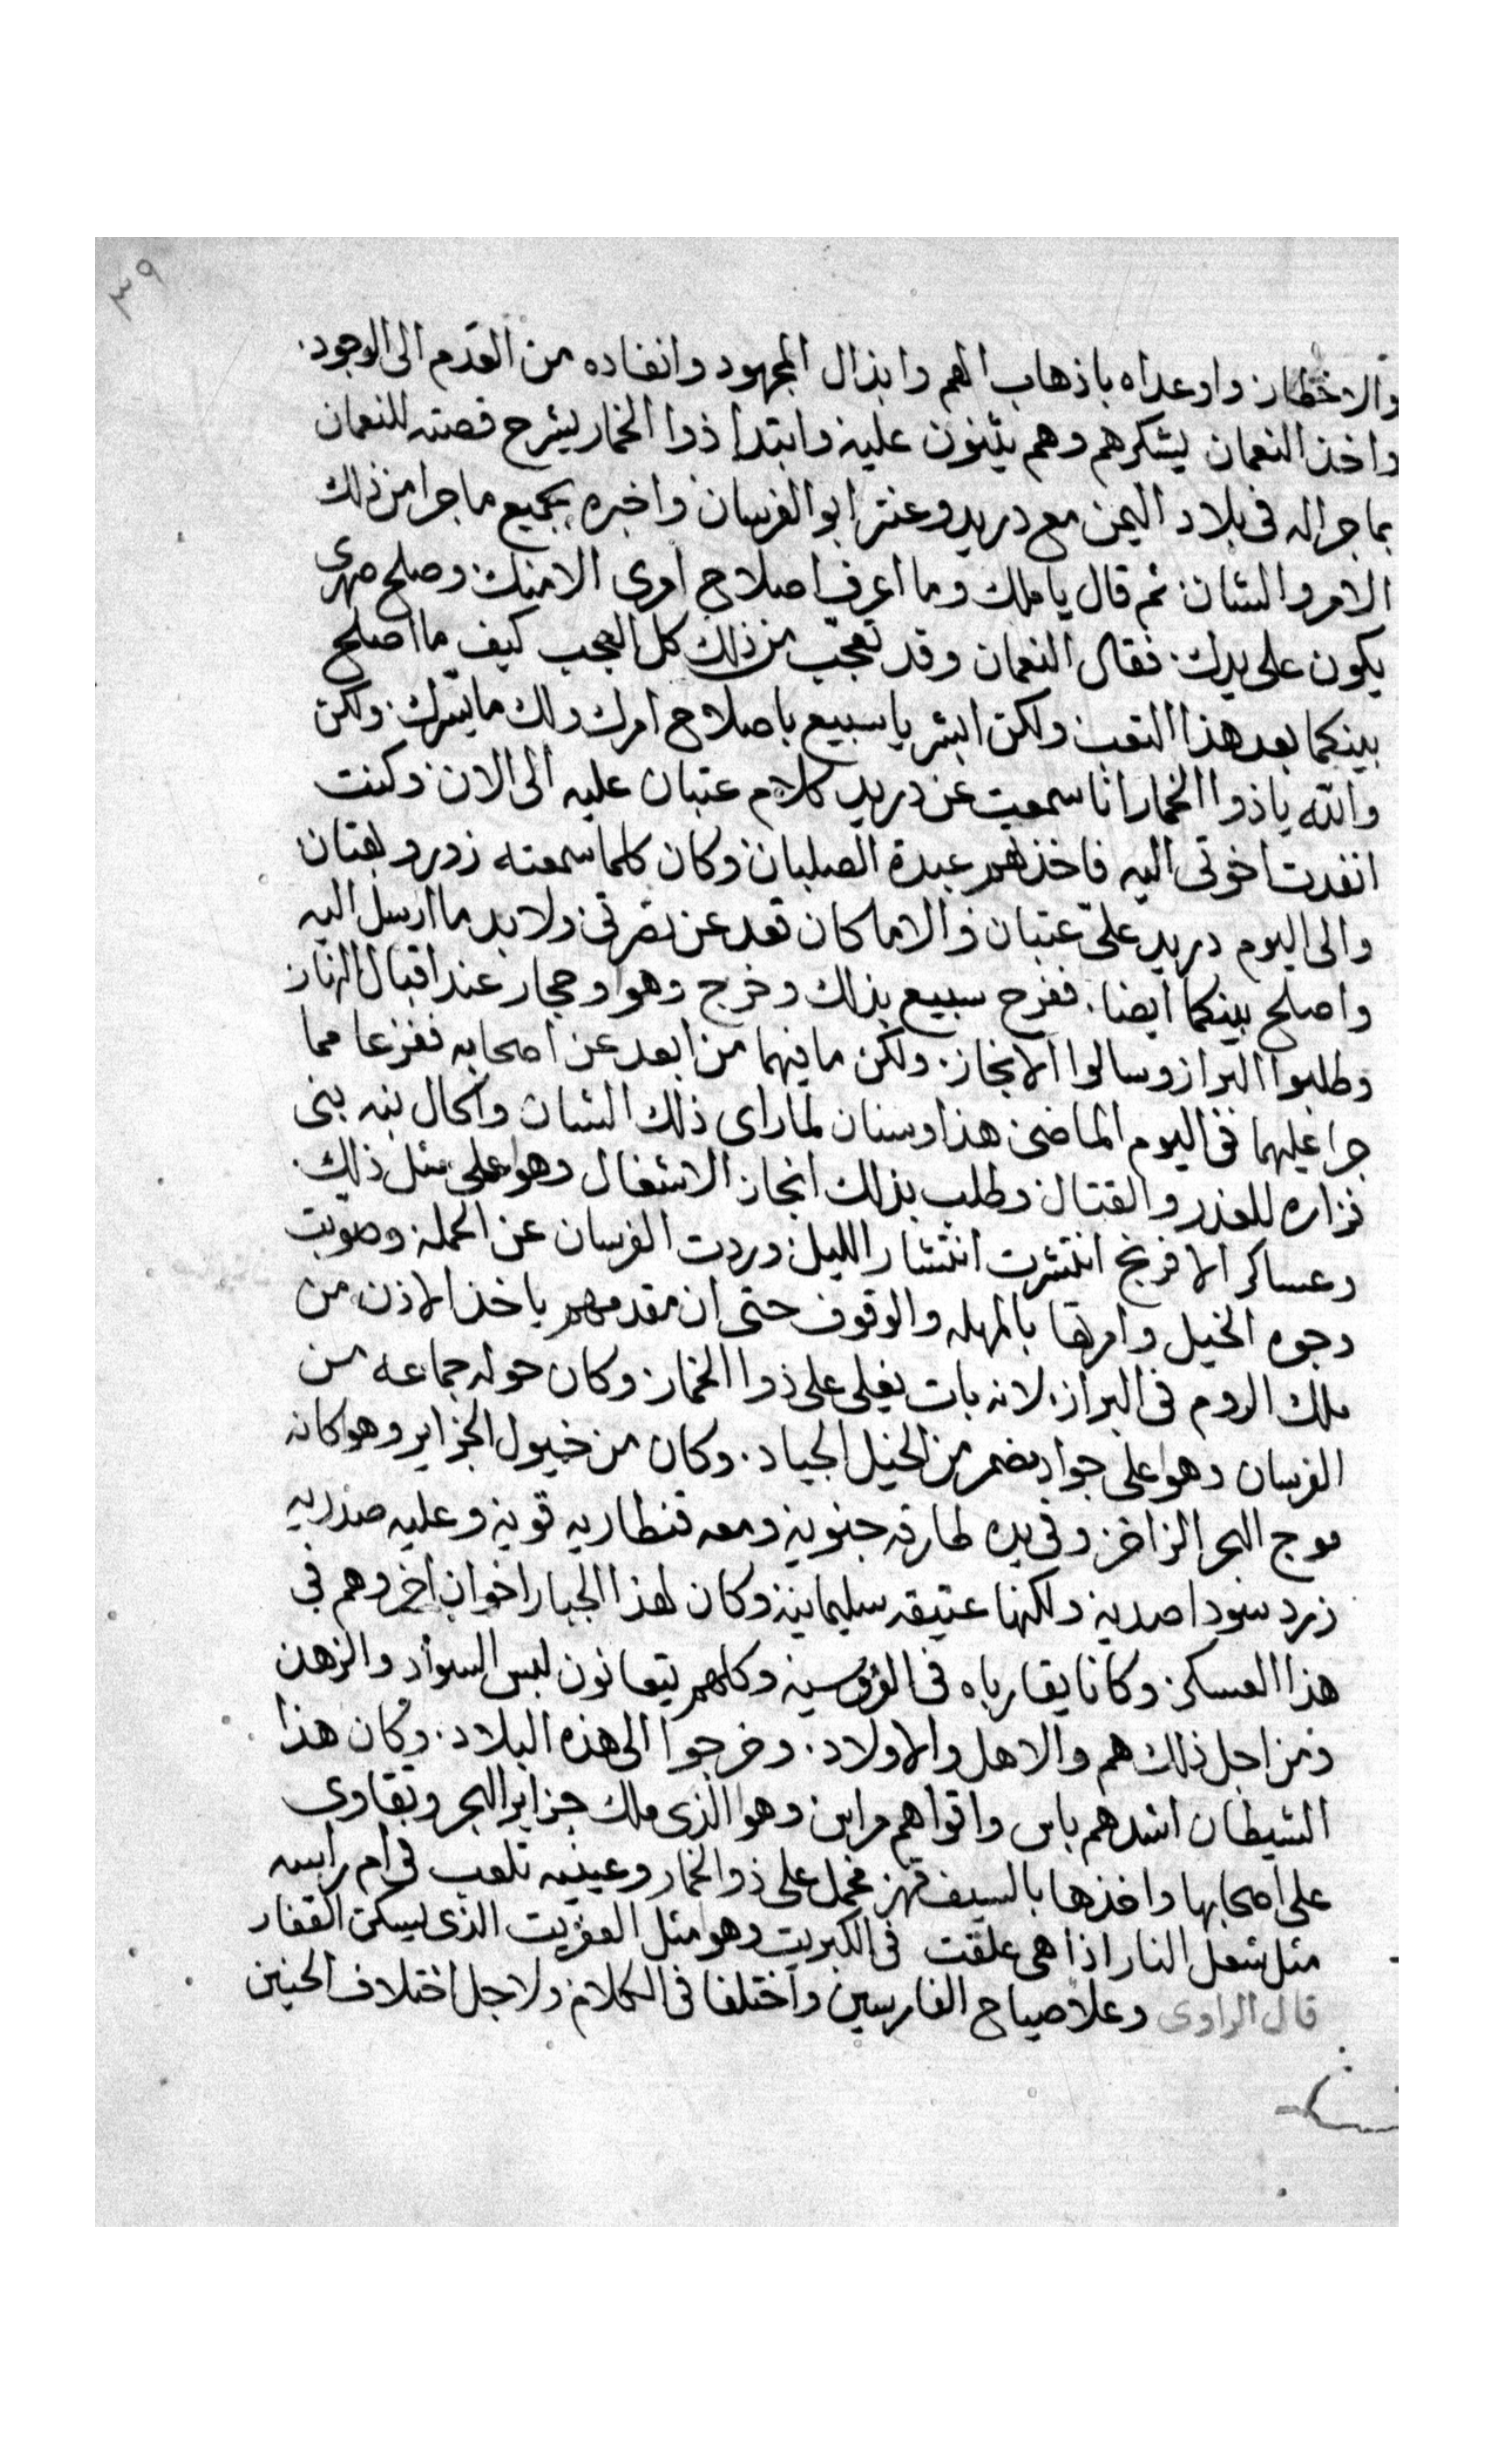 ٣٩
والاخطار واوعداه باذهاب الهم وابذال المجهود وانفاده من العدم الى الوجود
واخذ النعمان يشكرهم وهم يثنون عليه وابتدا ذوا الخمار يشرح قصته للنعمان
بما جرا له فى بلاد اليمن مع دريد وعنتر ابو الفرسان واخبره بجميع ما جرا من ذلك
الامر والشان ثم قال يا ملك وما اعرف اصلاح امرى الا منك وصلح صهرى
يكون على يدك فقال النعمان وقد تعجب من ذلك كل العجب كيف ما اصلح
بينكما بعد هذا التعب ولكن ابشر يا سبيع باصلاح امرك ولك ما يسرك ولكن
والله يا ذوا الخمار انا سمعت عن دريد كلام عتبان عليه الى الان وكنت
انفدت اخوتى اليه فاخذهم عبدة الصلبان وكان كلما سمعته زور وبهتان
والى اليوم دريد علىّ عتبان والا ما كان قعد عن نصرتى ولا بد ما ارسل اليه
واصلح بينكما ايضا ففرح سبيع بذلك وخرج وهو وحجار عند اقبال النهار
وطلبوا البراز وسالوا الانجاز ولكن ما فيهما من ابعد عن اصحابه ففزعا مما
جرا عليهما فى اليوم الماضى هذا وسنان لما راى ذلك الشان والحال نبه بنى
فزاره للغدر والقتال وطلب بذلك انجاز الاشغال وهو على مثل ذلك
وعساكر الافرنج انتشرت انتشار الليل وردت الفرسان عن الحمله وضربت
وجوه الخيل وامرتها بالمهله والوقوف حتى ان مقدمهم ياخذ الاذن من
ملك الروم فى البراز لانه بات يغلى على ذوا الخمار وكان حوله جماعه من
الفرسان وهو على جواد مضمر من الخيل الجياد وكان من خيول الجزاير وهو كانه
موج البحر الزاخر وفى يده طارقه جنوية ومعه قنطاريه قوية وعليه صدريه
زرد سودا صديه ولكنها عتيقه سليمانية وكان لهذا الجبار اخوان اخر وهم فى
هذا العسكر وكانا يقارباه فى الفروسية وكلهم يتعانون لبس السواد والزهد
ومن اجل ذلك هم والاهل والاولاد وخرجوا الى هذه البلاد وكان هذا
الشيطان اشدهم باس واقواهم مراس وهو الذى ملك جزاير البحر وتقاوى
على اصحابها واخذها بالسيف قهر فحمل على ذوا الخمار وعينيه تلعب فى ام راسه
مثل شعل النار اذا هى علقت فى الكبريت وهو مثل العفريت الذى يسكن القفار
قال الراوى وعلا صياح الفارسين واختلفا فى الكلام ولاجل اختلاف الجنين